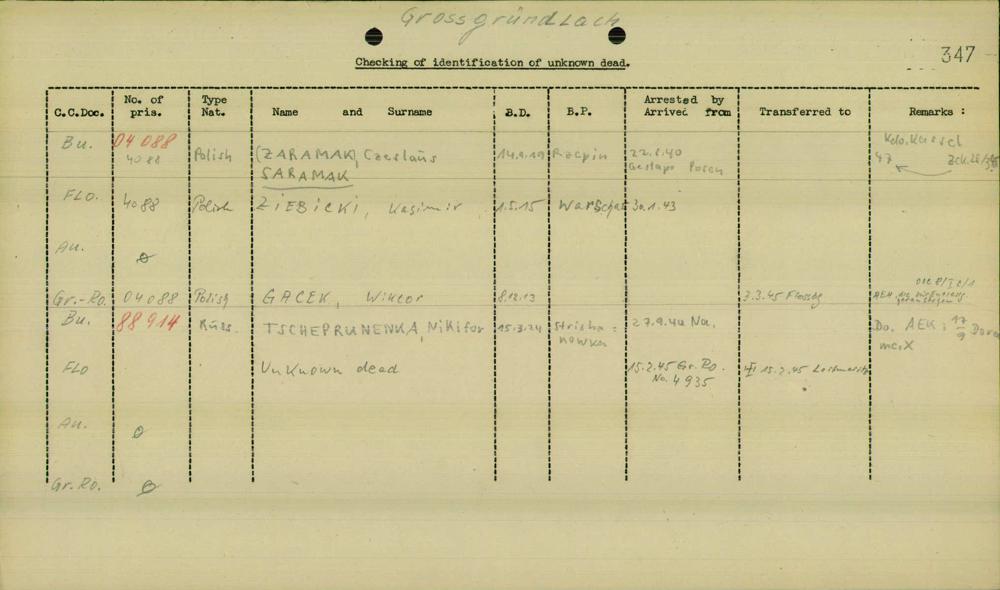 Grossgründlach
347
Checking of identification of unknown dead.
C.C.Doc. No. of pris. Type Nat. Name and Surname B.D. B.P. Arrested by Arrived from Transferred to Remarks :
Bu. 04 088 Kdo. Kassel
4088 Polish (ZARAMAK) Czeslaus 14.9.19 Rzepin 22.8.40 47
SARAMAK Gestapo Posen
FLO. 4088 Polish ZIEBICKI, Kasimir 1.5.15 Warschau 30.1.43
Au. ø
Gr.-Ro. 04088 Polish GACEK, Wiktor 8.12.13 3.3.45 Flossbg
Bu. 88 914 Russ. TSCHEPRUNENKA, Nikifor 15.3.24 Strisha = 27.9.44 Na. Do. AEK: 17/9 Dora
nowka mc.X
FLO Unknown dead 15.2.45 Gr. Ro. 15.2.45 Leitmeritz
No. 4935
Au. ø
Gr. Ro. ø